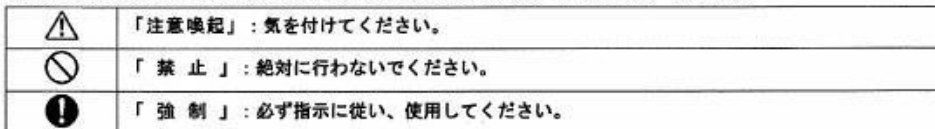 「注意喚起」：気を付けてください。
「 禁 止 」：絶対に行わないでください。
「 強 制 」：必ず指示に従い、使用してください。